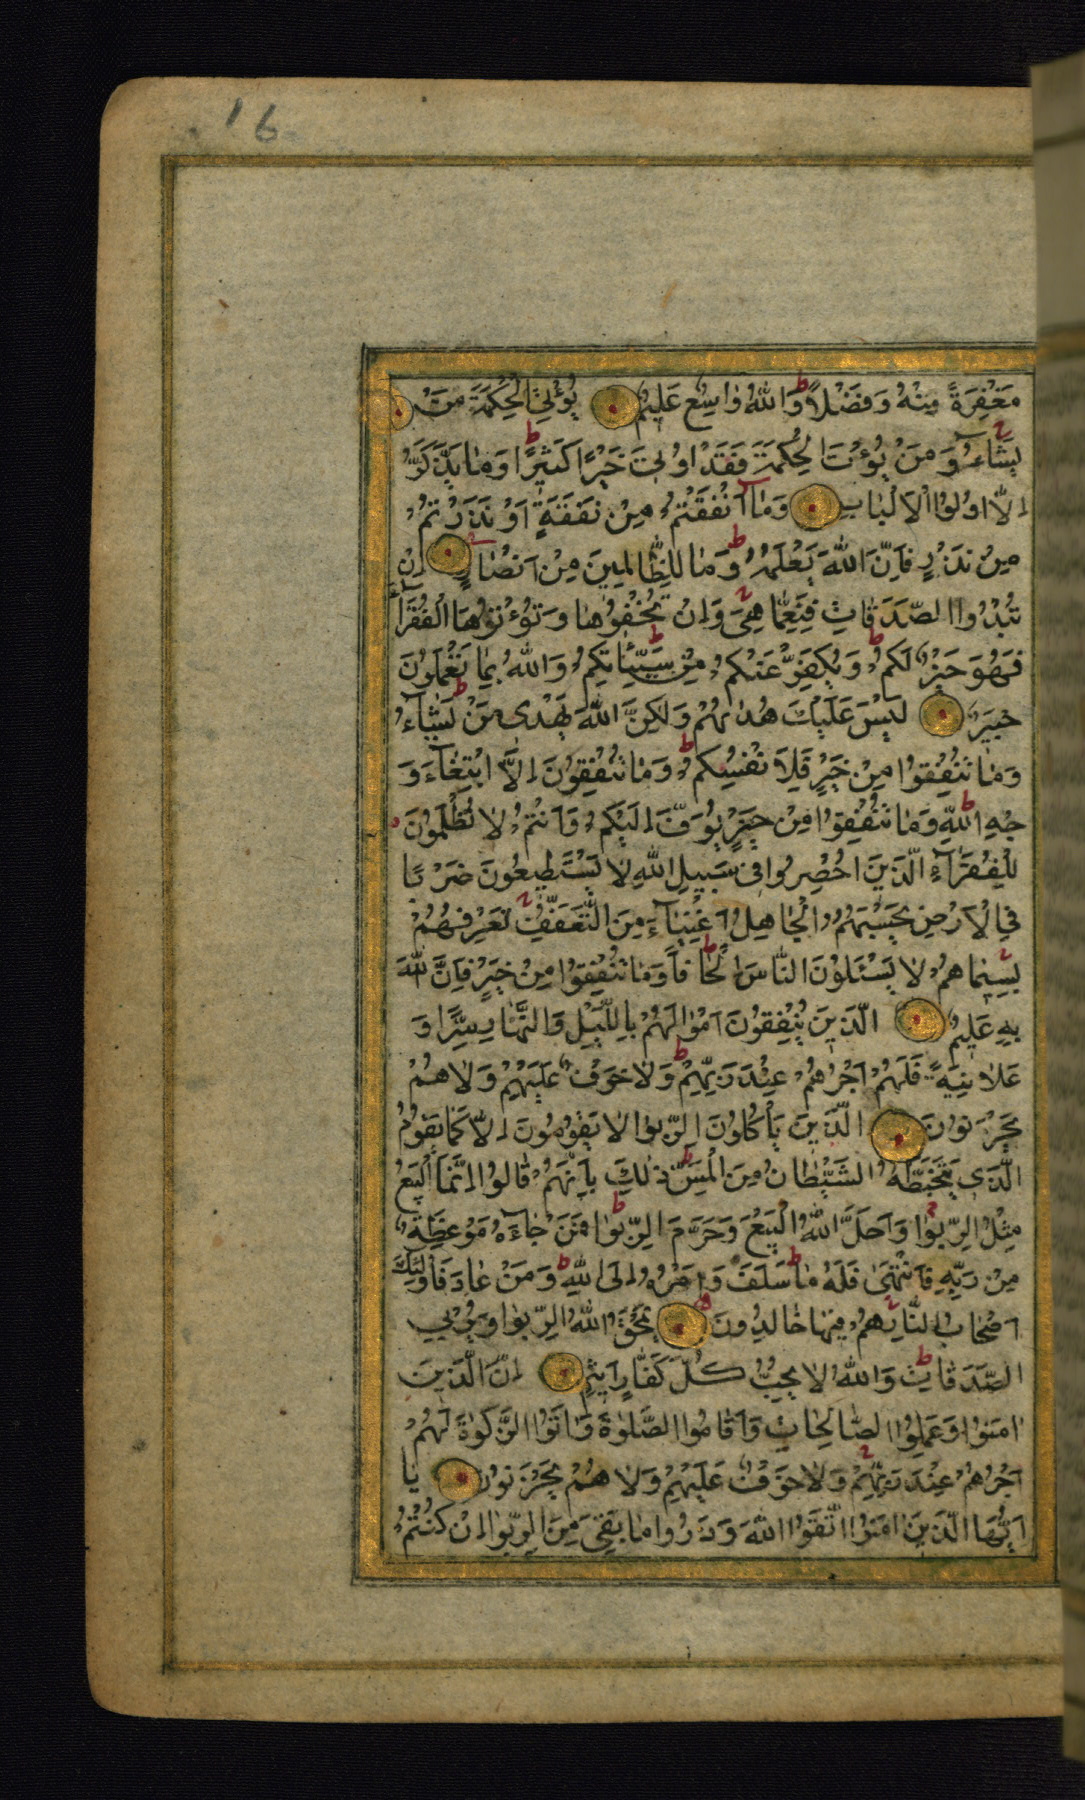 16
مَغْفِرَةً مِنْهُ وَفَضْلًا وَاللهُ وَاسِعٌ عَلِيمٌ يُؤْتِي الْحِكْمَةَ مَنْ
يَشَاءُ وَمَنْ يُؤْتَ الْحِكْمَةَ فَقَدْ اُوتِيَ خَيْرًا كَثِيرًا وَمَا يَذَّكَّرُ
اِلَّا اُولُوا الْاَلْبَابِ وَمَا اَنْفَقْتُمْ مِنْ نَفَقَةٍ اَوْ نَذَرْتُمْ
مِنْ نَذْرٍ فَاِنَّ اللهَ يَعْلَمُهُ وَمَا لِلظَّالِمِينَ مِنْ اَنْصَارٍ اِنْ
تُبْدُوا الصَّدَقَاتِ فَنِعِمَّا هِيَ وَاِنْ تُخْفُوهَا وَتُؤْتُوهَا الْفُقَرَاءَ
فَهُوَ خَيْرٌ لَكُمْ وَيُكَفِّرُ عَنْكُمْ مِنْ سَيِّئَاتِكُمْ وَاللهُ بِمَا تَعْمَلُونَ
خَبِيرٌ لَيْسَ عَلَيْكَ هُدٰيهُمْ وَلٰكِنَّ اللهَ يَهْدِى مَنْ يَشَاءُ
وَمَا تُنْفِقُوا مِنْ خَيْرٍ فَلِاَنْفُسِكُمْ وَمَا تُنْفِقُونَ اِلَّا ابْتِغَاءَ وَ
جْهِ اللهِ وَمَا تُنْفِقُوا مِنْ خَيْرٍ يُوَفَّ اِلَيْكُمْ وَاَنْتُمْ لَا تُظْلَمُونَ
لِلْفُقَرَاءِ الَّذِينَ اُحْصِرُوا فِى سَبِيلِ اللهِ لَا يَسْتَطِيعُونَ ضَرْبًا
فِي الْاَرْضِ يَحْسَبُهُمُ الْجَاهِلُ اَغْنِيَاءَ مِنَ التَّعَفُّفِ تَعْرِفُهُمْ
بِسِيمَاهُمْ لَا يَسْئَلُونَ النَّاسَ اِلْحَافًا وَمَا تُنْفِقُوا مِنْ خَيْرٍ فَاِنَّ اللهَ
بِهِ عَلِيمٌ الَّذِينَ يُنْفِقُونَ اَمْوَالَهُمْ بِاللَّيْلِ وَالنَّهَارِ سِرًّا وَ
عَلَانِيَةً فَلَهُمْ اَجْرُهُمْ عِنْدَ رَبِّهِمْ وَلَا خَوْفٌ عَلَيْهِمْ وَلَا هُمْ
يَحْزَنُونَ الَّذِينَ يَأْكُلُونَ الرِّبٰوا لَا يَقُومُونَ اِلَّا كَمَا يَقُومُ
الَّذِي يَتَخَبَّطُهُ الشَّيْطَانُ مِنَ الْمَسِّ ذٰلِكَ بِاَنَّهُمْ قَالُوا اِنَّمَا الْبَيْعُ
مِثْلُ الرِّبٰوا وَاَحَلَّ اللهُ الْبَيْعَ وَحَرَّمَ الرِّبٰوا فَمَنْ جَاءَهُ مَوْعِظَةٌ
مِنْ رَبِّهِ فَانْتَهٰى فَلَهُ مَا سَلَفَ وَاَمْرُهُ اِلَى اللهِ وَمَنْ عَادَ فَاُولٰئِكَ
اَصْحَابُ النَّارِ هُمْ فِيهَا خَالِدُونَ يَمْحَقُ اللهُ الرِّبٰوا وَيُرْبِي
الصَّدَقَاتِ وَاللهُ لَا يُحِبُّ كُلَّ كَفَّارٍ اَثِيمٍ اِنَّ الَّذِينَ
اٰمَنُوا وَعَمِلُوا الصَّالِحَاتِ وَاَقَامُوا الصَّلٰوةَ وَاٰتَوُا الزَّكٰوةَ لَهُمْ
اَجْرُهُمْ عِنْدَ رَبِّهِمْ وَلَا خَوْفٌ عَلَيْهِمْ وَلَا هُمْ يَحْزَنُونَ يَا
اَيُّهَا الَّذِينَ اٰمَنُوا اتَّقُوا اللهَ وَذَرُوا مَا بَقِيَ مِنَ الرِّبٰوا اِنْ كُنْتُمْ